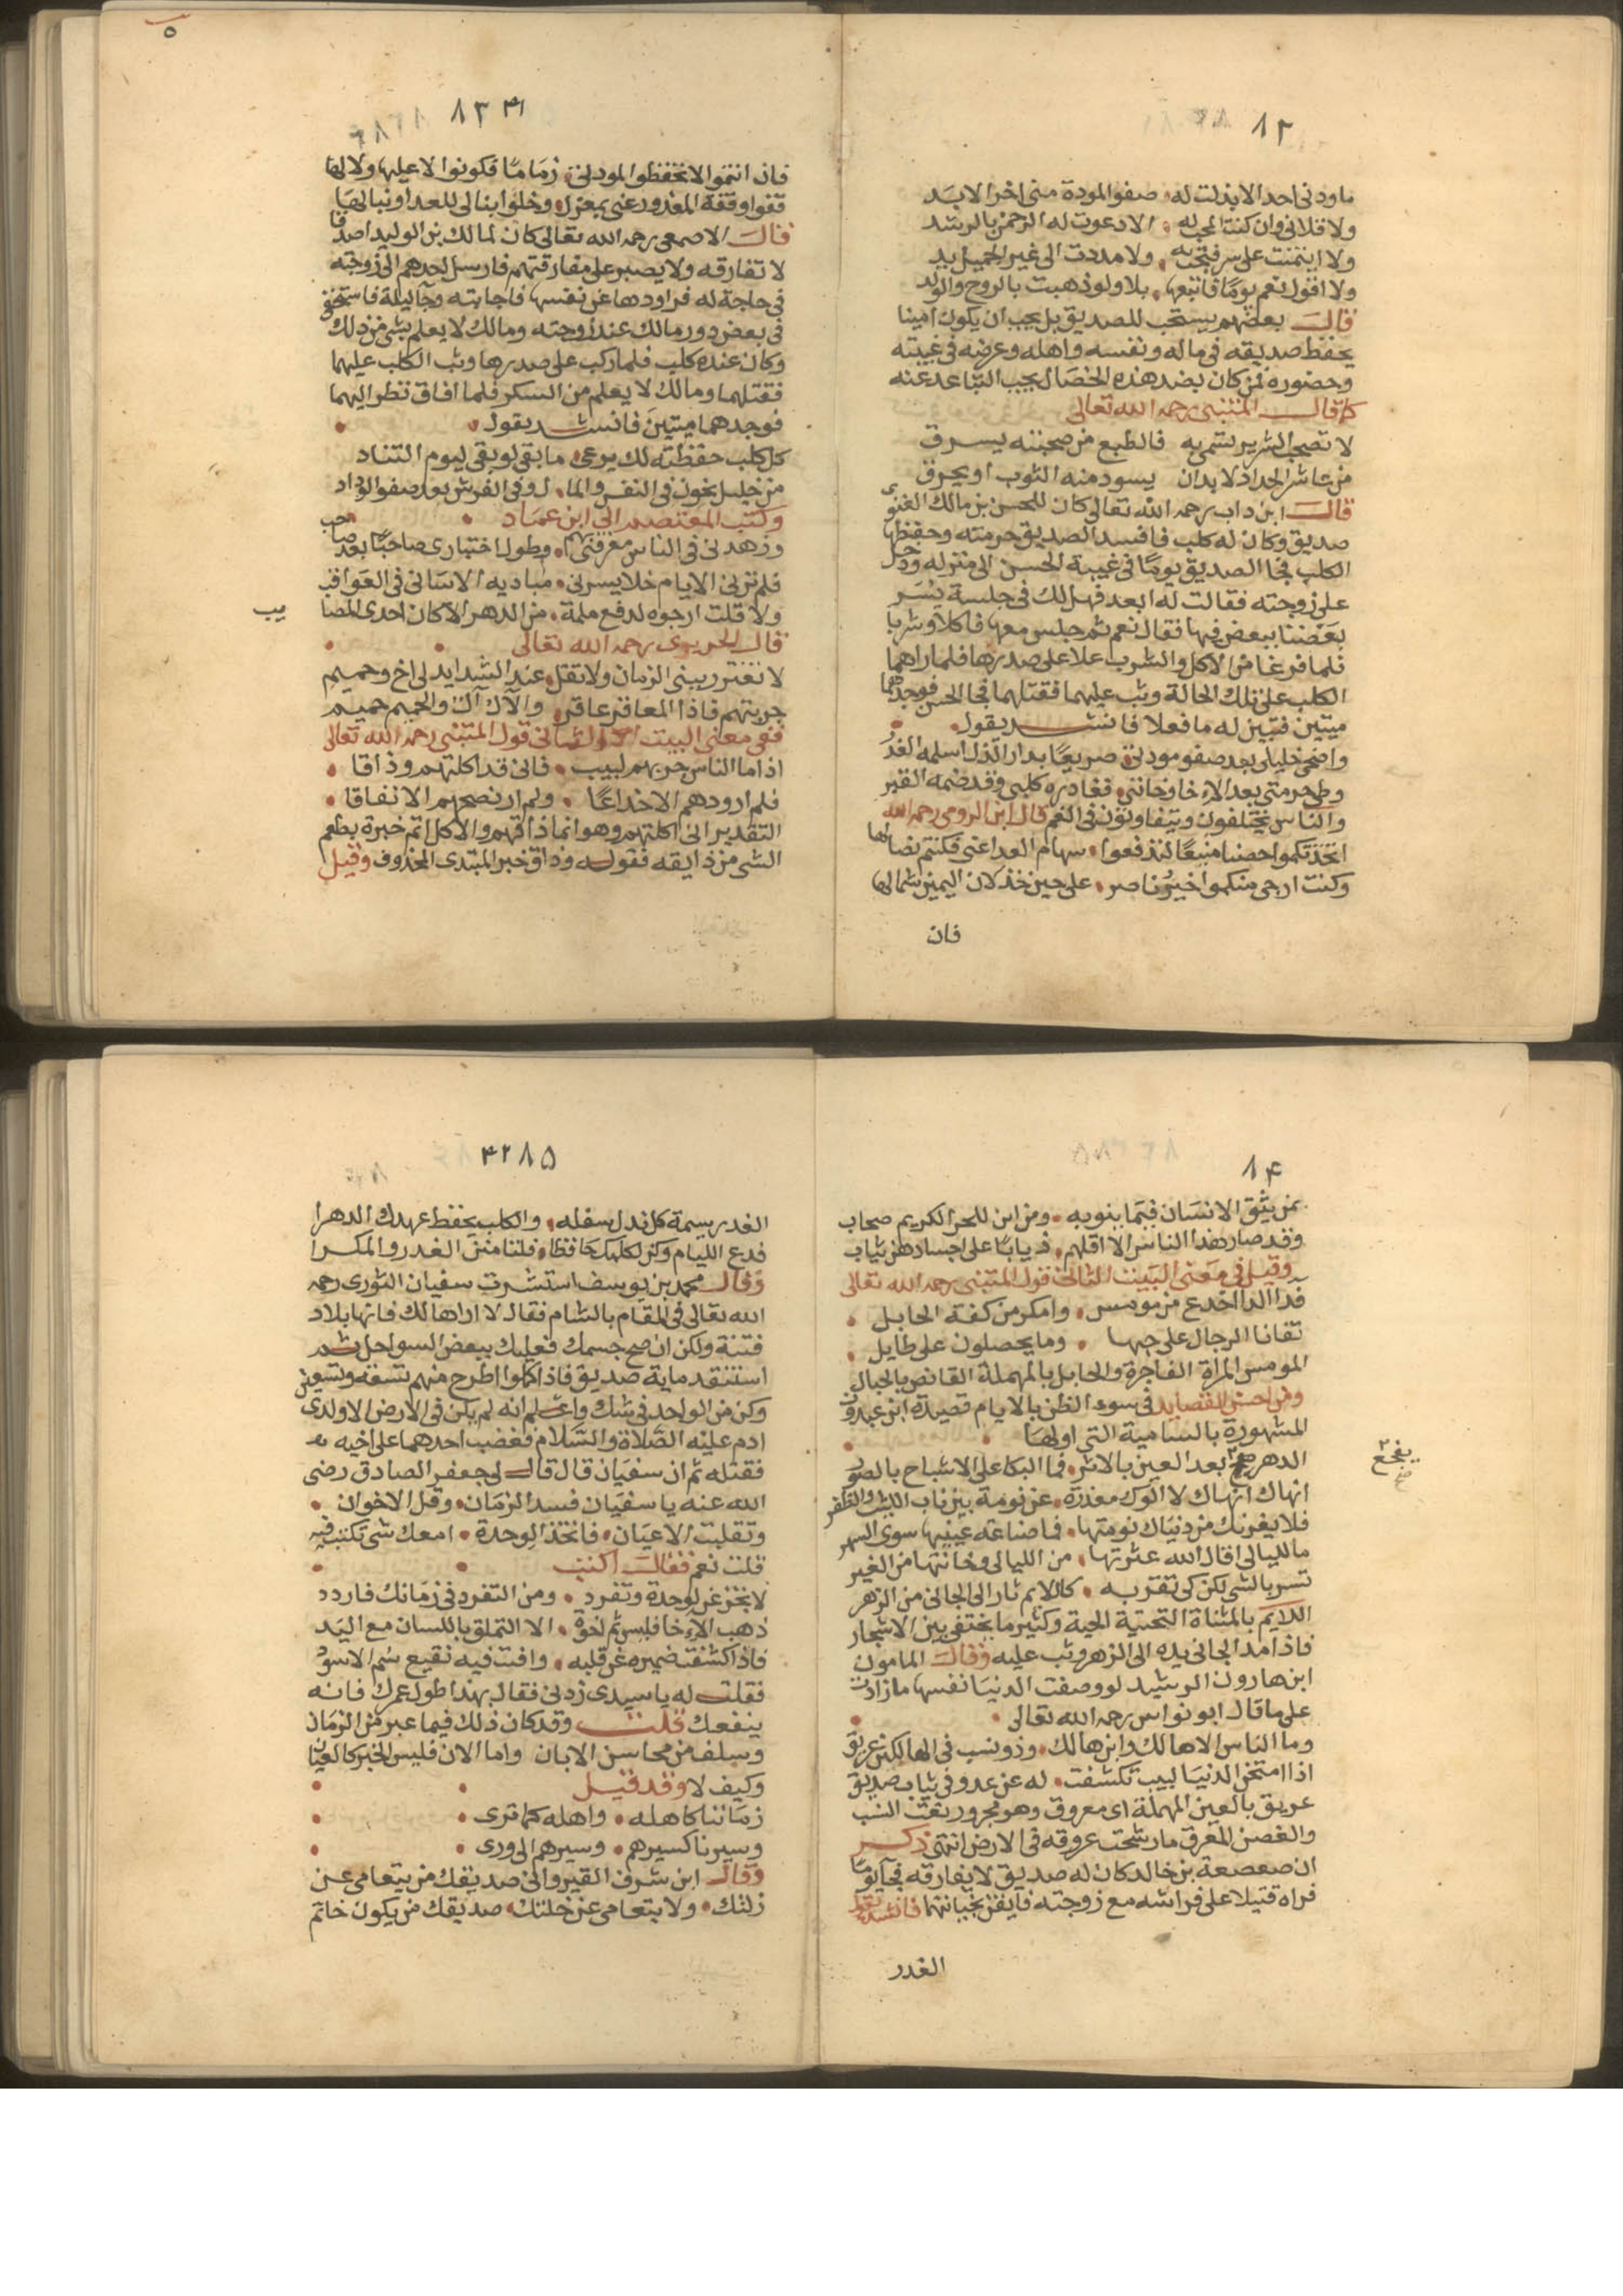 ١٢
ماودنى احد الا بذلت له صفو المودة منى اخر الابد
ولا قلانى وان كنت المحب له الا دعوت له الرحمن بالرشد
ولا ايتمنت على سر فبحت به ولا مددت الى غير الجميل يد
ولا اقول نعم يوما فاتبعها بلا ولو ذهبت بالروح والولد
قال بعضهم يستحب للصديق بل يجب ان يكون امينا
يحفظ صديقه فى ماله ونفسه واهله وعرضه فى غيبته
وحضوره فمن كان بضد هذه الخصال يجب التباعد عنه
كما قال المتنبى رحمه الله تعالى
لا تصحب الشرير تتهم به فالطبع من صحبته يسرق
من عاشر الحداد لا بد ان يسود منه الثوب او يحرق
قال ابن داب رحمه الله تعالى كان للحسن بن مالك الغنوى
صديق وكان له كلب فافسد الصديق حرمته وحفظها
الكلب فجا الصديق يوما فى غيبة الحسن الى منزله ودخل
على زوجته فقالت له ابعد فهل لك فى جلسة يسر
بعضنا ببعض فيها فقال نعم ثم جلس معها فاكلا وشربا
فلما فرغا من الاكل والشرب علا على صدرها فلما راهما
الكلب على تلك الحالة وثب عليهما فقتلهما فجا الحسن فوجدهما
ميتين فتبين له ما فعلا فانشد يقول
واضحى خليلى بعد صفو مودتى صريعا بدار الذل اسلمه الغدر
وطى حرمتى بعد الاخا وخاننى فغادره كلبى وقد ضمه القبر
والناس يختلفون ويتفاوتون فى النعم قال ابن الرومى رحمه الله
اتخذتكموا حصنا منيعا لتدفعوا سهام العدا عنى فكنتم نصالها
وكنت ارجى منكموا خير ناصر على حين خذلان اليمين شمالها
فان
٥
١٣ ٣١
فان انتموا لا تحفظوا المودتى زماما فكونوا لا عليها ولا لها
قفوا وقفة المعذور عنى بمعزل وخلوا بنالى للعدا ونبالها
قال الاصمعى رحمه الله تعالى كان لمالك بن الوليد اصدقا
لا تفارقه ولا يصبر على مفارقتهم فارسل احدهم الى زوجته
فى حاجة له فراودها عن نفسها فاجابته وجا ليلة فاستخفى
فى بعض دور مالك عند زوجته ومالك لا يعلم بشى من ذلك
وكان عنده كلب فلما ركب على صدرها وثب الكلب عليهما
فقتلهما ومالك لا يعلم من السكر فلما افاق نظر اليهما
فوجدهما ميتين فانشد يقول
كل كلب حفظته لك يرعى ما بقى لو بقى ليوم التناد
من خليل يخون فى النفس والمال وفى الفرش بعد صفو الوداد
وكتب المعتصم الى ابن عماد
وزهدنى فى الناس معرفتى بهم وطول اختبارى صاحبا بعد صاحب
فلم ترنى الايام خلا يسرنى مباديه الا سانى فى العواقب
ولا قلت ارجوه لدفع ملمة من الدهر الا كان احدى المصايب
قال الحريرى رحمه الله تعالى
لا تغترر ببنى الزمان ولا تقل عند الشدايد لى اخ وحميم
جربتهم فاذا المعاقر عاقر والآل آل والحميم حميم
ففى معنى البيت الاول والثانى قول المتنبى رحمه الله تعالى
اذا ما الناس جربهم لبيب فانى قد اكلتهم وذاقا
فلم ار ودهم الا خداعا ولم ار نصحهم الا نفاقا
التقدير انى اكلتهم وهو انما ذاقهم والاكل اتم خبرة بطعم
الشى من ذايقه فقوله وذاق خبر المبتدى المحذوف وقيل
١٤
بمن يثق الانسان فيما ينوبه ومن اين للحر الكريم صحاب
وقد صار هذا الناس الا اقلهم ذيابا على اجسادهن ثياب
وقيل فى معنى البيت الثالث قول المتنبى رحمه الله تعالى
فدا الدا اخدع من مومس وامكر من كفة الحابل
تفانا الرجال على حبها وما يحصلون على طايل
المومس المراة الفاجرة والحابل بالمهملة القانص بالحبال
ومن احسن القصايد فى سوء الظن بالايام قصيدة ابن عبدون
المشهورة بالسامية التى اولها
الدهر يفجع بعد العين بالاثر فما البكا على الاشباح بالصور
انهاك انهاك لا الوك معذرة عن نومة بين ناب الليث والظفر
فلا يغرنك من دنياك نومتها فما صناعة عينيها سوى السهر
ما لليالى اقال الله عثرتها من الليالى وخانتها من الغير
تسر بالشى لكن كى تغر به كالايم ثار الى الجانى من الزهر
الايم بالمثناة التحتية الحية وكثير ما يختفى بين الاشجار
فاذا مد الجانى يده الى الزهر وثب عليه وقال المامون
ابن هارون الرشيد لو وصفت الدنيا نفسها ما زادت
على ما قال ابو نواس رحمه الله تعالى
وما الناس الا هالك وابن هالك وذو نسب فى الهالكين عريق
اذا امتحن الدنيا لبيب تكشفت له عن عدو فى ثياب صديق
عريق بالعين المهملة اى معروق وهو مجرور نعت النسب
والغصن المعرق ما رسخت عروقه فى الارض انتهى ذكر
ان صعصعة بن خالد كان له صديق لا يفارقه فجا يوما
فراه قتيلا على فراشه مع زوجته فايقن بخيانتهما فانشد يقول
الغدر
يفجع
صح
١٥ ٣٢
الغدر سيمة كل نذل سفله والكلب يحفظ عهدك الدهرا
فدع الليام وكن لكلبك حافظا فلتامنن الغدر والمكرا
وقال محمد بن يوسف استشرت سفيان الثورى رحمه
الله تعالى فى المقام بالشام فقال لا اراها لك فانها بلاد
فتنة ولكن ان صح جسمك فعليك ببعض السواحل ثم
استنقد ماية صديق فاذا كملوا اطرح منهم تسعة وتسعين
وكن من الواحد فى شك واعلم انه لم يكن فى الارض الا ولدى
ادم عليه الصلاة والسلام فغضب احدهما على اخيه
فقتله ثم ان سفيان قال قال لى جعفر الصادق رضى
الله عنه يا سفيان فسد الزمان وقل الاخوان
وتقلبت الاعيان فاتخذ الوحدة امعك شى تكتب فيه
قلت نعم فقال اكتب
لا تجزعن لوحدة وتفرد ومن التفرد فى زمانك فازدد
ذهب الاخا فليس ثم اخوة الا التملق باللسان مع اليد
فاذا كشفت ضميره عن قلبه وافت فيه نقيع سم الاسود
فقلت له يا سيدى زدنى فقال بهذا طول عمرك فانه
ينفعك قلت وقد كان ذلك فيما عبر من الزمان
وسلف من محاسن الابان واما الان فليس الخبر كالعيان
وكيف لا وقد قيل
زماننا كاهله واهله كما ترى
وسيرنا كسيرهم وسيرهم الى ورى
وقال ابن شرف القيروانى صديقك من يتعامى عن
زلتك ولا يتعامى عن خلتك صديقك من يكون خاتم